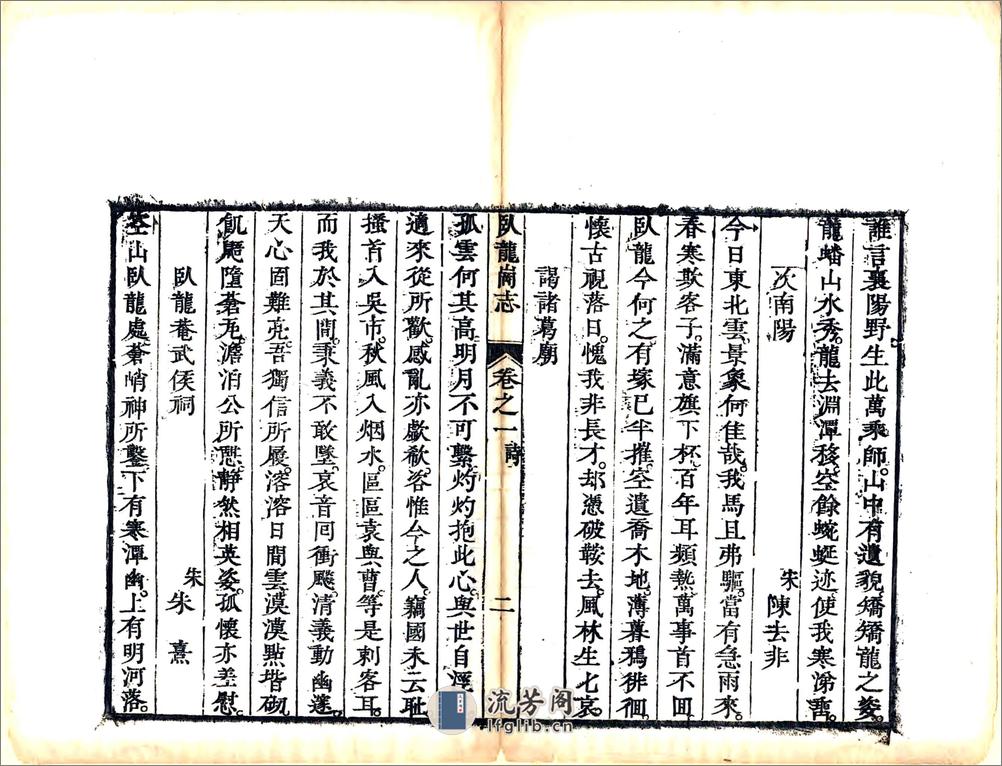 誰言襄陽野生此萬乘師山中有遺貌矯矯龍之姿
龍蟠山水秀龍去淵潭移空餘蜿蜒迹使我寒涕垂
次南陽 宋 陳去非
今日東北雲景象何佳哉我馬且弗驅當有急雨來
春寒欺客子滿意旗下杯百年耳頻熱萬事首不回
臥龍今何之有冢已半摧空遺喬木地薄暮鴉徘徊
懷古視落日愧我非長才却憑破鞍去風林生七哀
謁諸葛廟
臥龍崗志 卷之一 詩 二
孤雲何其高明月不可繫灼灼抱此心與世自涇
適來從所歡感亂亦歔欷客惟今之人竊國未云恥
搔首入吳市秋風入烟水區區袁與曹等是刺客耳
而我於其間秉義不敢墜哀音同衝飈清義動幽邃
天心固難亮吾獨信所履溶溶日間雲漠漠點堦砌
飢鼯墮蒼瓦澹泊公所思靜然相英姿孤懷亦差慰
臥龍菴武侯祠 朱 朱熹
空山臥龍處蒼峭神所鑿下有寒潭幽上有明河落
流芳阁
lfglib.cn